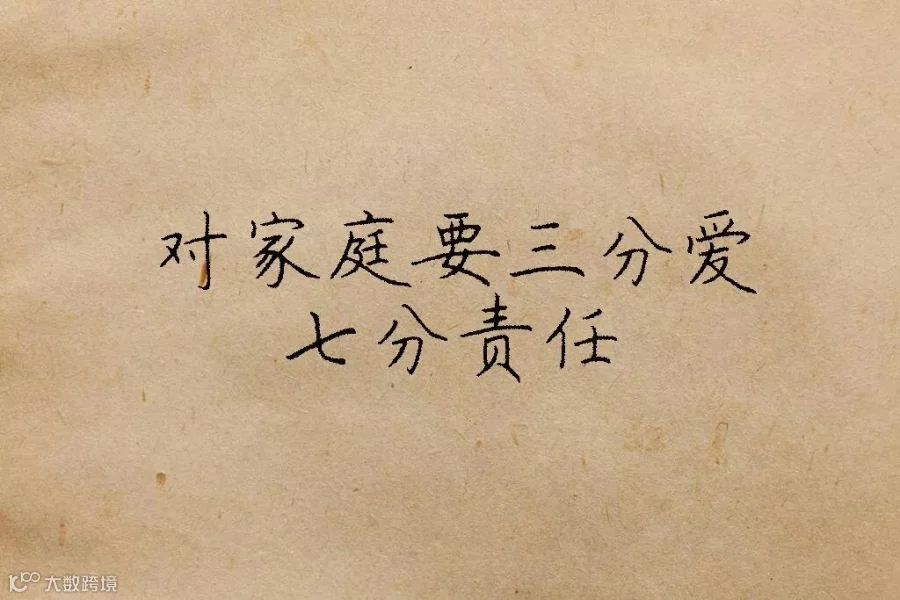 对家庭要三分爱
七分责任
大数跨境